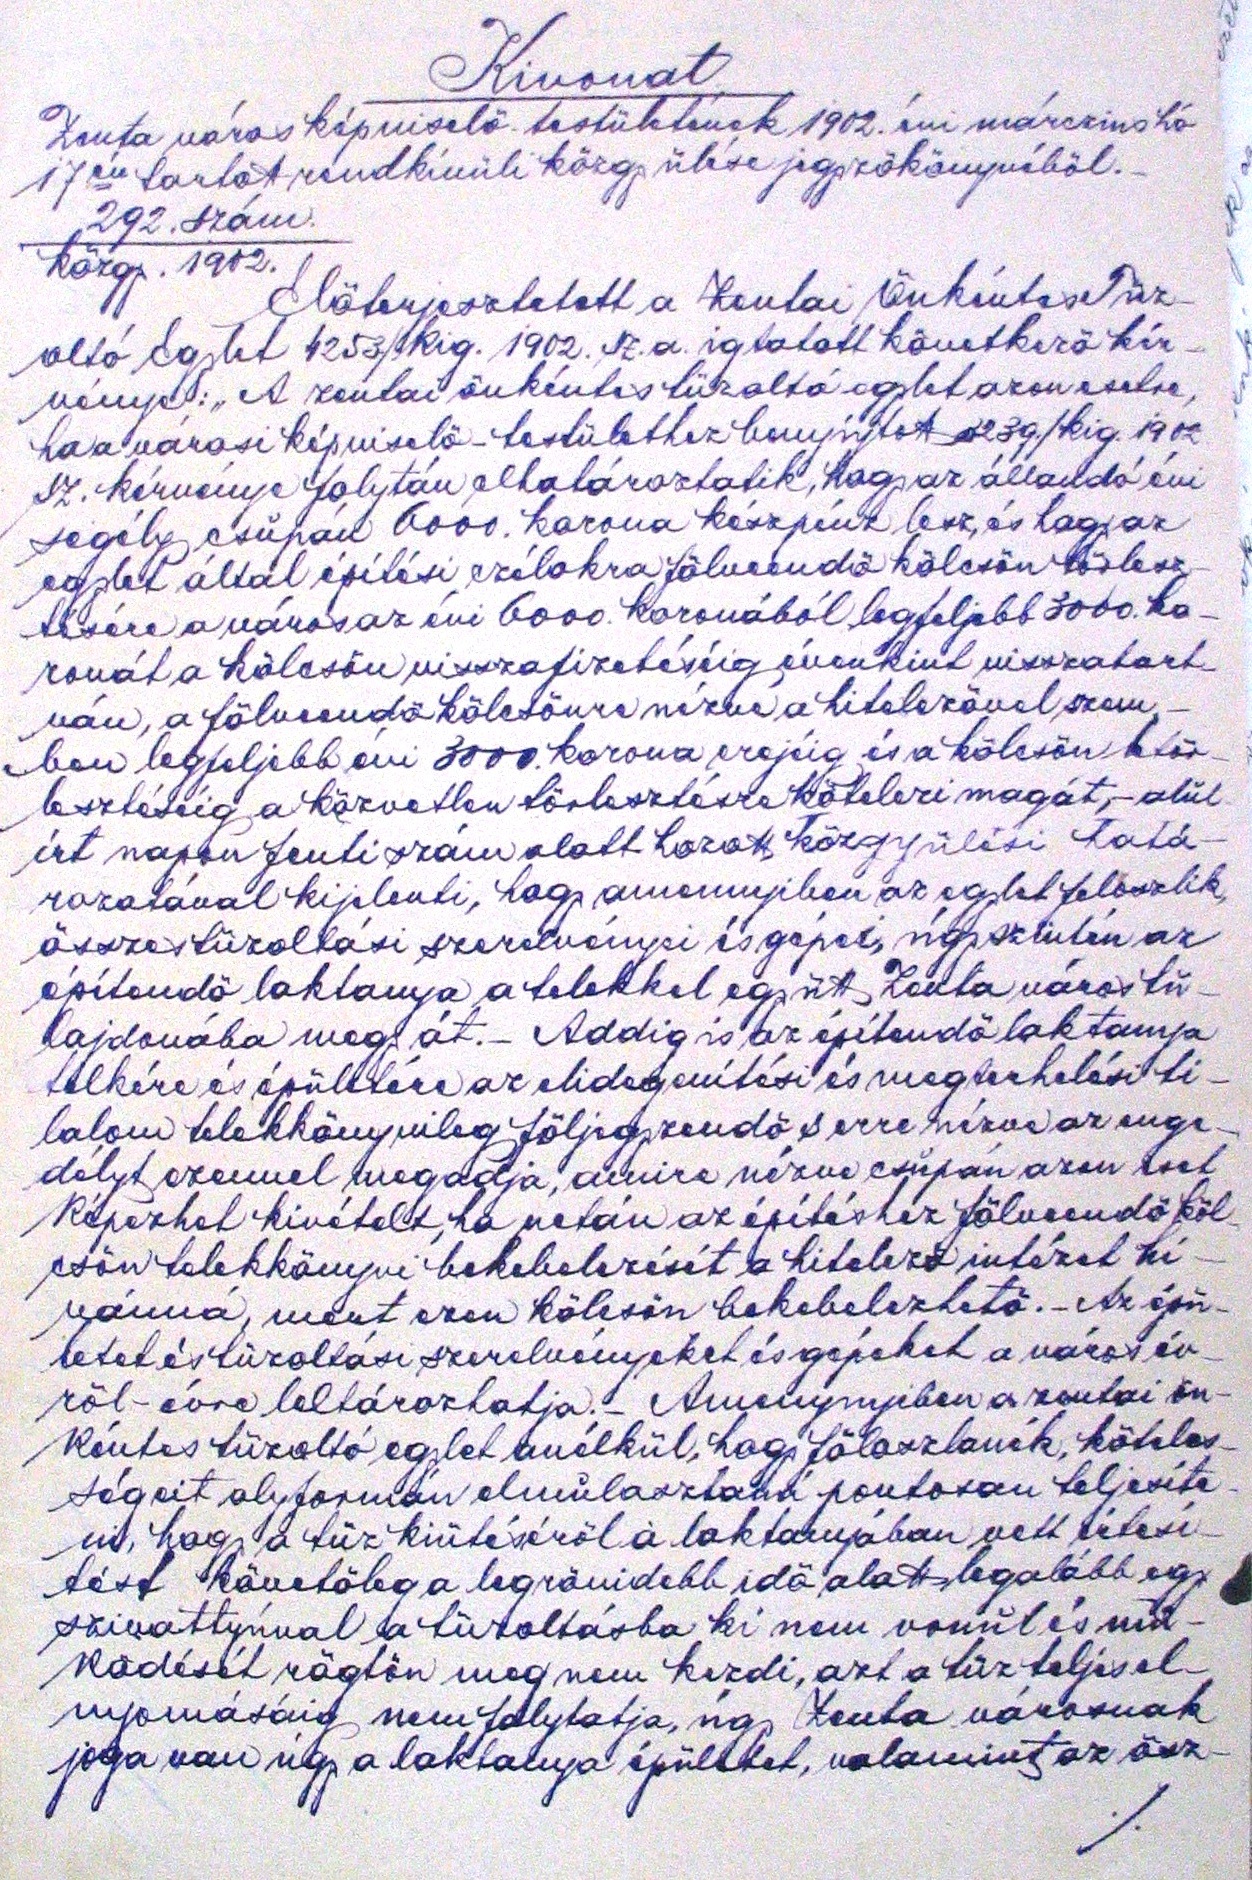 Kivonat
Zenta város képviselö-testületének 1902. évi márczius hó
17én tartott rendkívüli közgyülése jegyzökönyvéböl.-
292. szám.
közgy. 1902.
Elöterjesztetett a Zentai Önkéntes Tüz-
oltó Egylet 4253/kig. 1902. sz. a. igtatott következö kér-
vénye: „A zentai önkéntes tüzoltó egylet azon esetre,
ha a városi képviselö-testülethez benyújtott 239/kig. 1902
sz. kérvénye folytán elhatároztatik, hogy az állandó évi
segély csupán 6000. korona készpénz lesz, és hogy az
egylet által épitési czélokra fölveendö kölcsön törlesz-
tésére a város az évi 6000. koronából legfeljebb 3000. ko-
ronát a kölcsön visszafizetéséig évenkint visszatart-
ván, a fölveendö kölcsönre nézve a hitelezövel szem-
ben legfeljebb évi 3000. korona erejéig és a kölcsön letör-
lesztéséig a közvetlen törlesztésre kötelezi magát,- alúl
irt napon fenti szám alatt hozott közgyülési hatá-
rozatával kijelenti, hogy amennyiben az egylet feloszlik,
összes tüzoltási szerelvényei és gépei, úgyszintén az
épitendö laktanya a telekkel együtt Zenta város tu-
lajdonába megy át.- Addig is az épitendö laktanya
telkére és épületére az elidegenitési és megterhelési ti-
lalom telekkönyvileg följegyzendö s erre nézve az enge-
délyt ezennel megadja, amire nézve csupán azon eset
képezhet kivételt, ha netán az épitéshez fölveendö köl-
csön telekkönyvi bekebelezését a hitelezö intézet ki-
vánná, mert ezen kölcsön bekebelezhetö.- Az épü-
letet és tüzoltási szerelvényeket és gépeket a város év-
röl-évre leltároztatja.- Amennyiben a zentai ön-
kéntes tüzoltó egylet anélkül, hogy föloszlanék, köteles-
ségeit olyformán elmulasztaná pontosan teljesite-
ni, hogy a tüz kiütéséröl a laktanyában vett értesi-
tést követöleg a legrövidebb idö alatt legalább egy
szivattyúval a tüzoltásba ki nem vonúl és mü-
ködését rögtön meg nem kezdi, azt a tüz teljes el-
nyomásáig nem folytatja, úgy Zenta városnak
joga van úgy a laktanya épületet, valamint az ösz-
./.